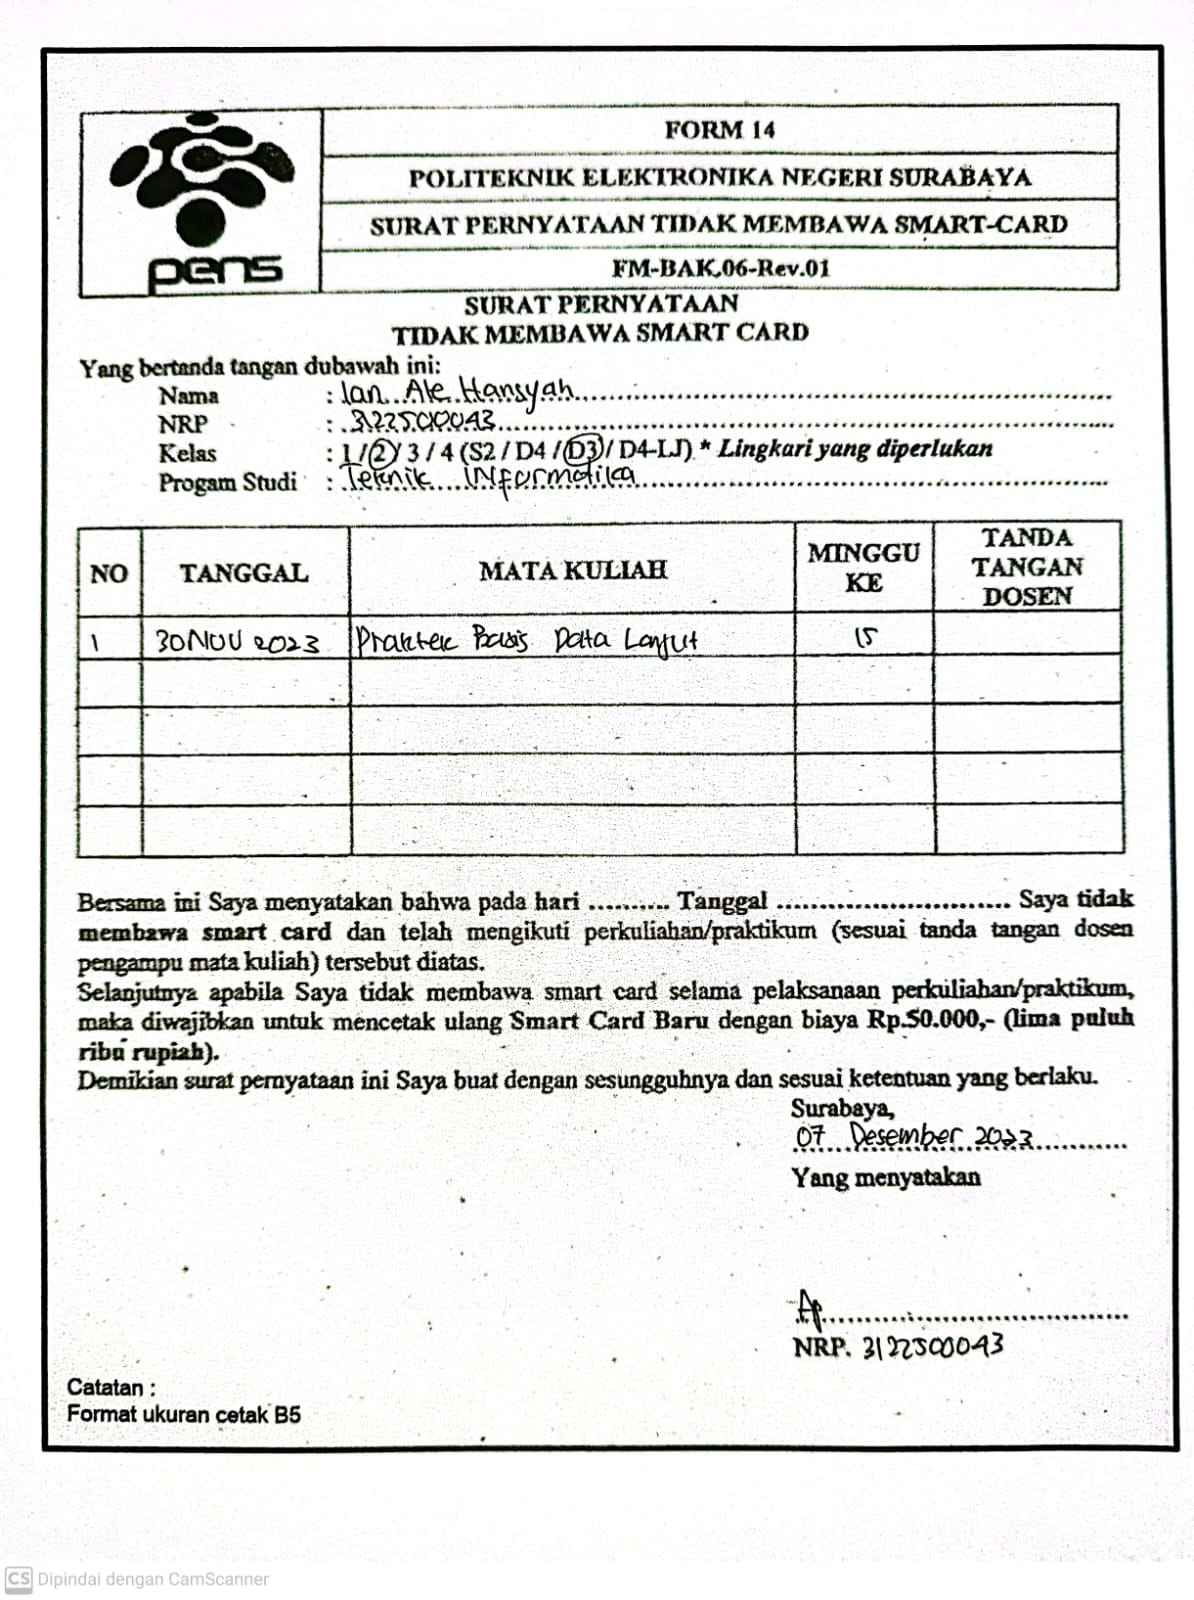 FORM 14
POLITEKNIK ELEKTRONIKA NEGERI SURABAYA
SURAT PERNYATAAN TIDAK MEMBAWA SMART-CARD
FM-BAK.06-Rev.01
pens
SURAT PERNYATAAN
TIDAK MEMBAWA SMART CARD
Yang bertanda tangan dubawah ini:
Nama : Ian Ale Hansyah
NRP : 3122500043
Kelas : 1 / 2 / 3 / 4 (S2 / D4 / D3 / D4-LJ) * Lingkari yang diperlukan
Progam Studi : Teknik Informatika
NO TANGGAL MATA KULIAH MINGGU KE TANDA TANGAN DOSEN
1 30 NOV 2023 Praktek Basis Data Lanjut 15
Bersama ini Saya menyatakan bahwa pada hari .......... Tanggal ............................ Saya tidak
membawa smart card dan telah mengikuti perkuliahan/praktikum (sesuai tanda tangan dosen
pengampu mata kuliah) tersebut diatas.
Selanjutnya apabila Saya tidak membawa smart card selama pelaksanaan perkuliahan/praktikum,
maka diwajibkan untuk mencetak ulang Smart Card Baru dengan biaya Rp.50.000,- (lima puluh
ribu rupiah).
Demikian surat pernyataan ini Saya buat dengan sesungguhnya dan sesuai ketentuan yang berlaku.
Surabaya,
07 Desember 2023
Yang menyatakan
NRP. 3122500043
Catatan :
Format ukuran cetak B5
CS Dipindai dengan CamScanner